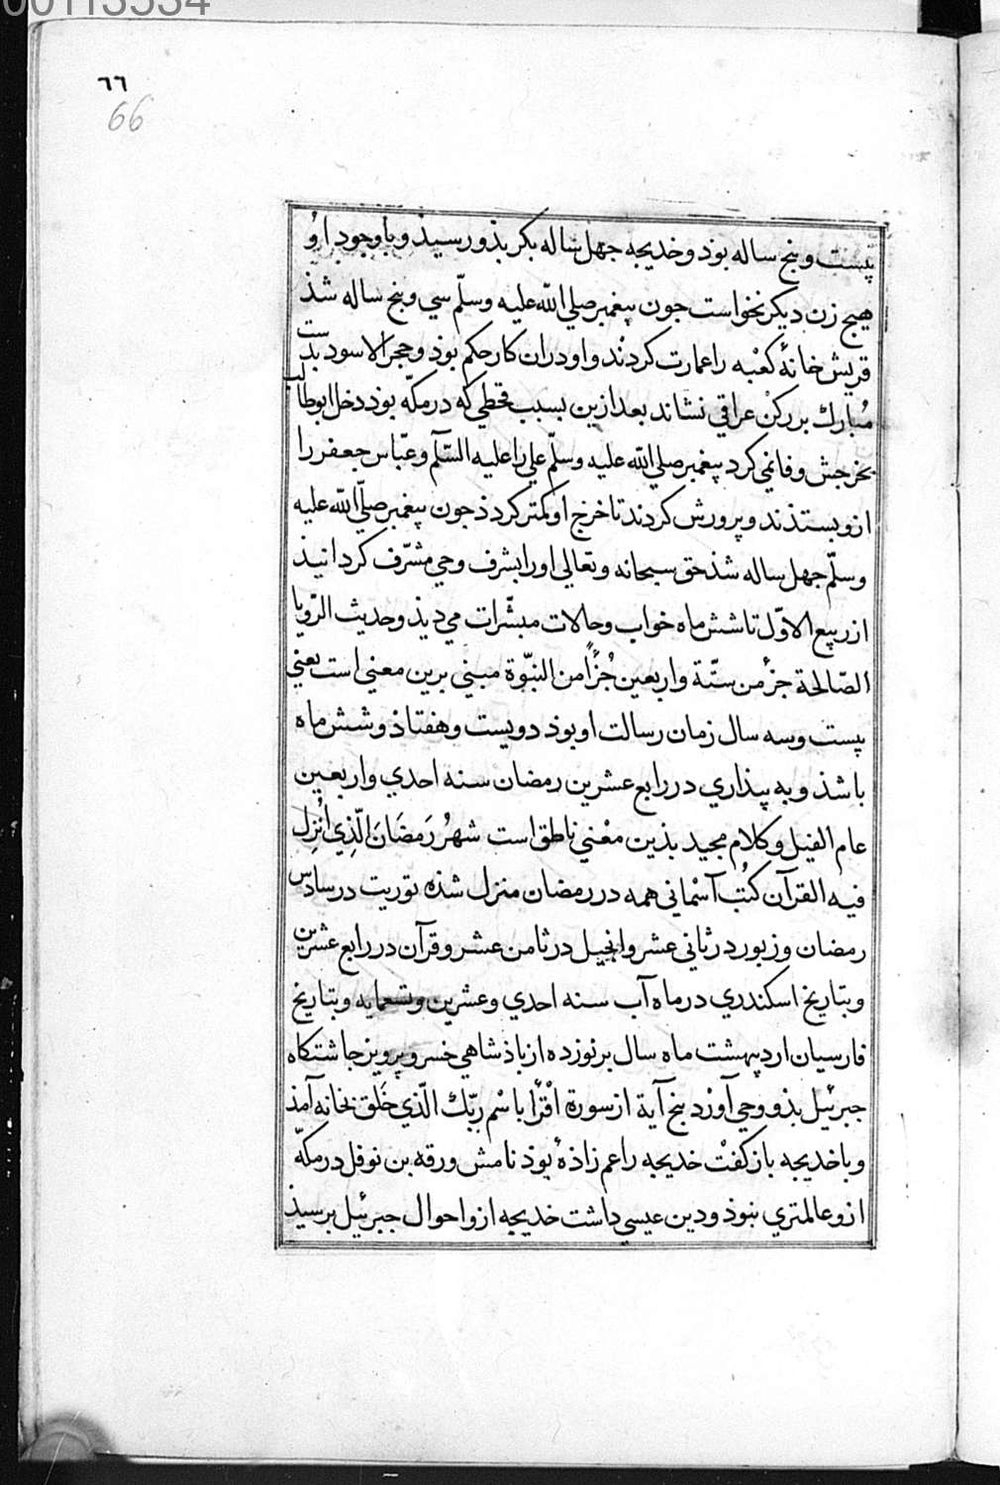 00113534
٦٦
66
بیست وبنج ساله بوذ وخدیجه جهل ساله بکر بذو رسیذ وباوجود او
هیج زن دیکر نخواست جون پیغمبر صلی الله علیه وسلّم سی وبنج ساله شذ
قریش خانهٔ کعبه را عمارت کردند واو دران کار حکم بوذ وحجر الاسود بدست
مُبارك بر رکن عراقي نشاند بعد ازین بسبب قحطي که در مکّه بوذ دخل ابوطالب
بخرجش وفا نمي کرد پیغمبر صلی الله علیه وسلّم علي را علیه السّلم وعبّاس جعفر را
ازو بستذند وپرورش کردند تا خرج او کمتر کرد ذ جون پیغمبر صلّی الله علیه
وسلّم جهل ساله شذ حق سبحانه وتعالی اورا بشرف وحي مشرّف کردانیذ
از ربیع الاوّل تا شش ماه خواب وحالات مبشّرات مي دیذ وحدیث الرّویا
الصّالحة جزٔ من ستّة واربعین جُزأً من النبّوة مبني برین معني است یعني
بیست وسه سال زمان رسالت او بوذ دویست وهفتاذ وشش ماه
باشذ وبه بیذاري در رابع عشرین رمضان سنه احدي واربعین
عام الفیل وکلام مجید بذین معْني ناطق است شهرُ رَمضَانَ الّذِي اُنْزِل
فیه القرآن کتُب آسْماني همه در رمضان منزل شذه توریت در سادس
رمضان وزبور در ثاني عشر وانجیل در ثامن عشر وقرآن در رابع عشرین
وبتاریخ اسکندري در ماه آب سنه احدي وعشرین وتسعمایه وبتاریخ
فارسیان اردیبهشت ماه سال بر نوزده از باذشاهي خسرو پرویز جاشتکاه
جبرئیل بذو وحي آورد بنج آیة از سورة اقْرأ باسْم ربّك الّذي خَلق بخانه آمذ
وبا خدیجه باز کفت خدیجه را عم زاذهٔ بوذ نامش ورقه بن نوفل در مکّه
ازو عالمتري نبوذ ودین عیسي داشت خدیجه ازو احوال جبرئیل برسیذ